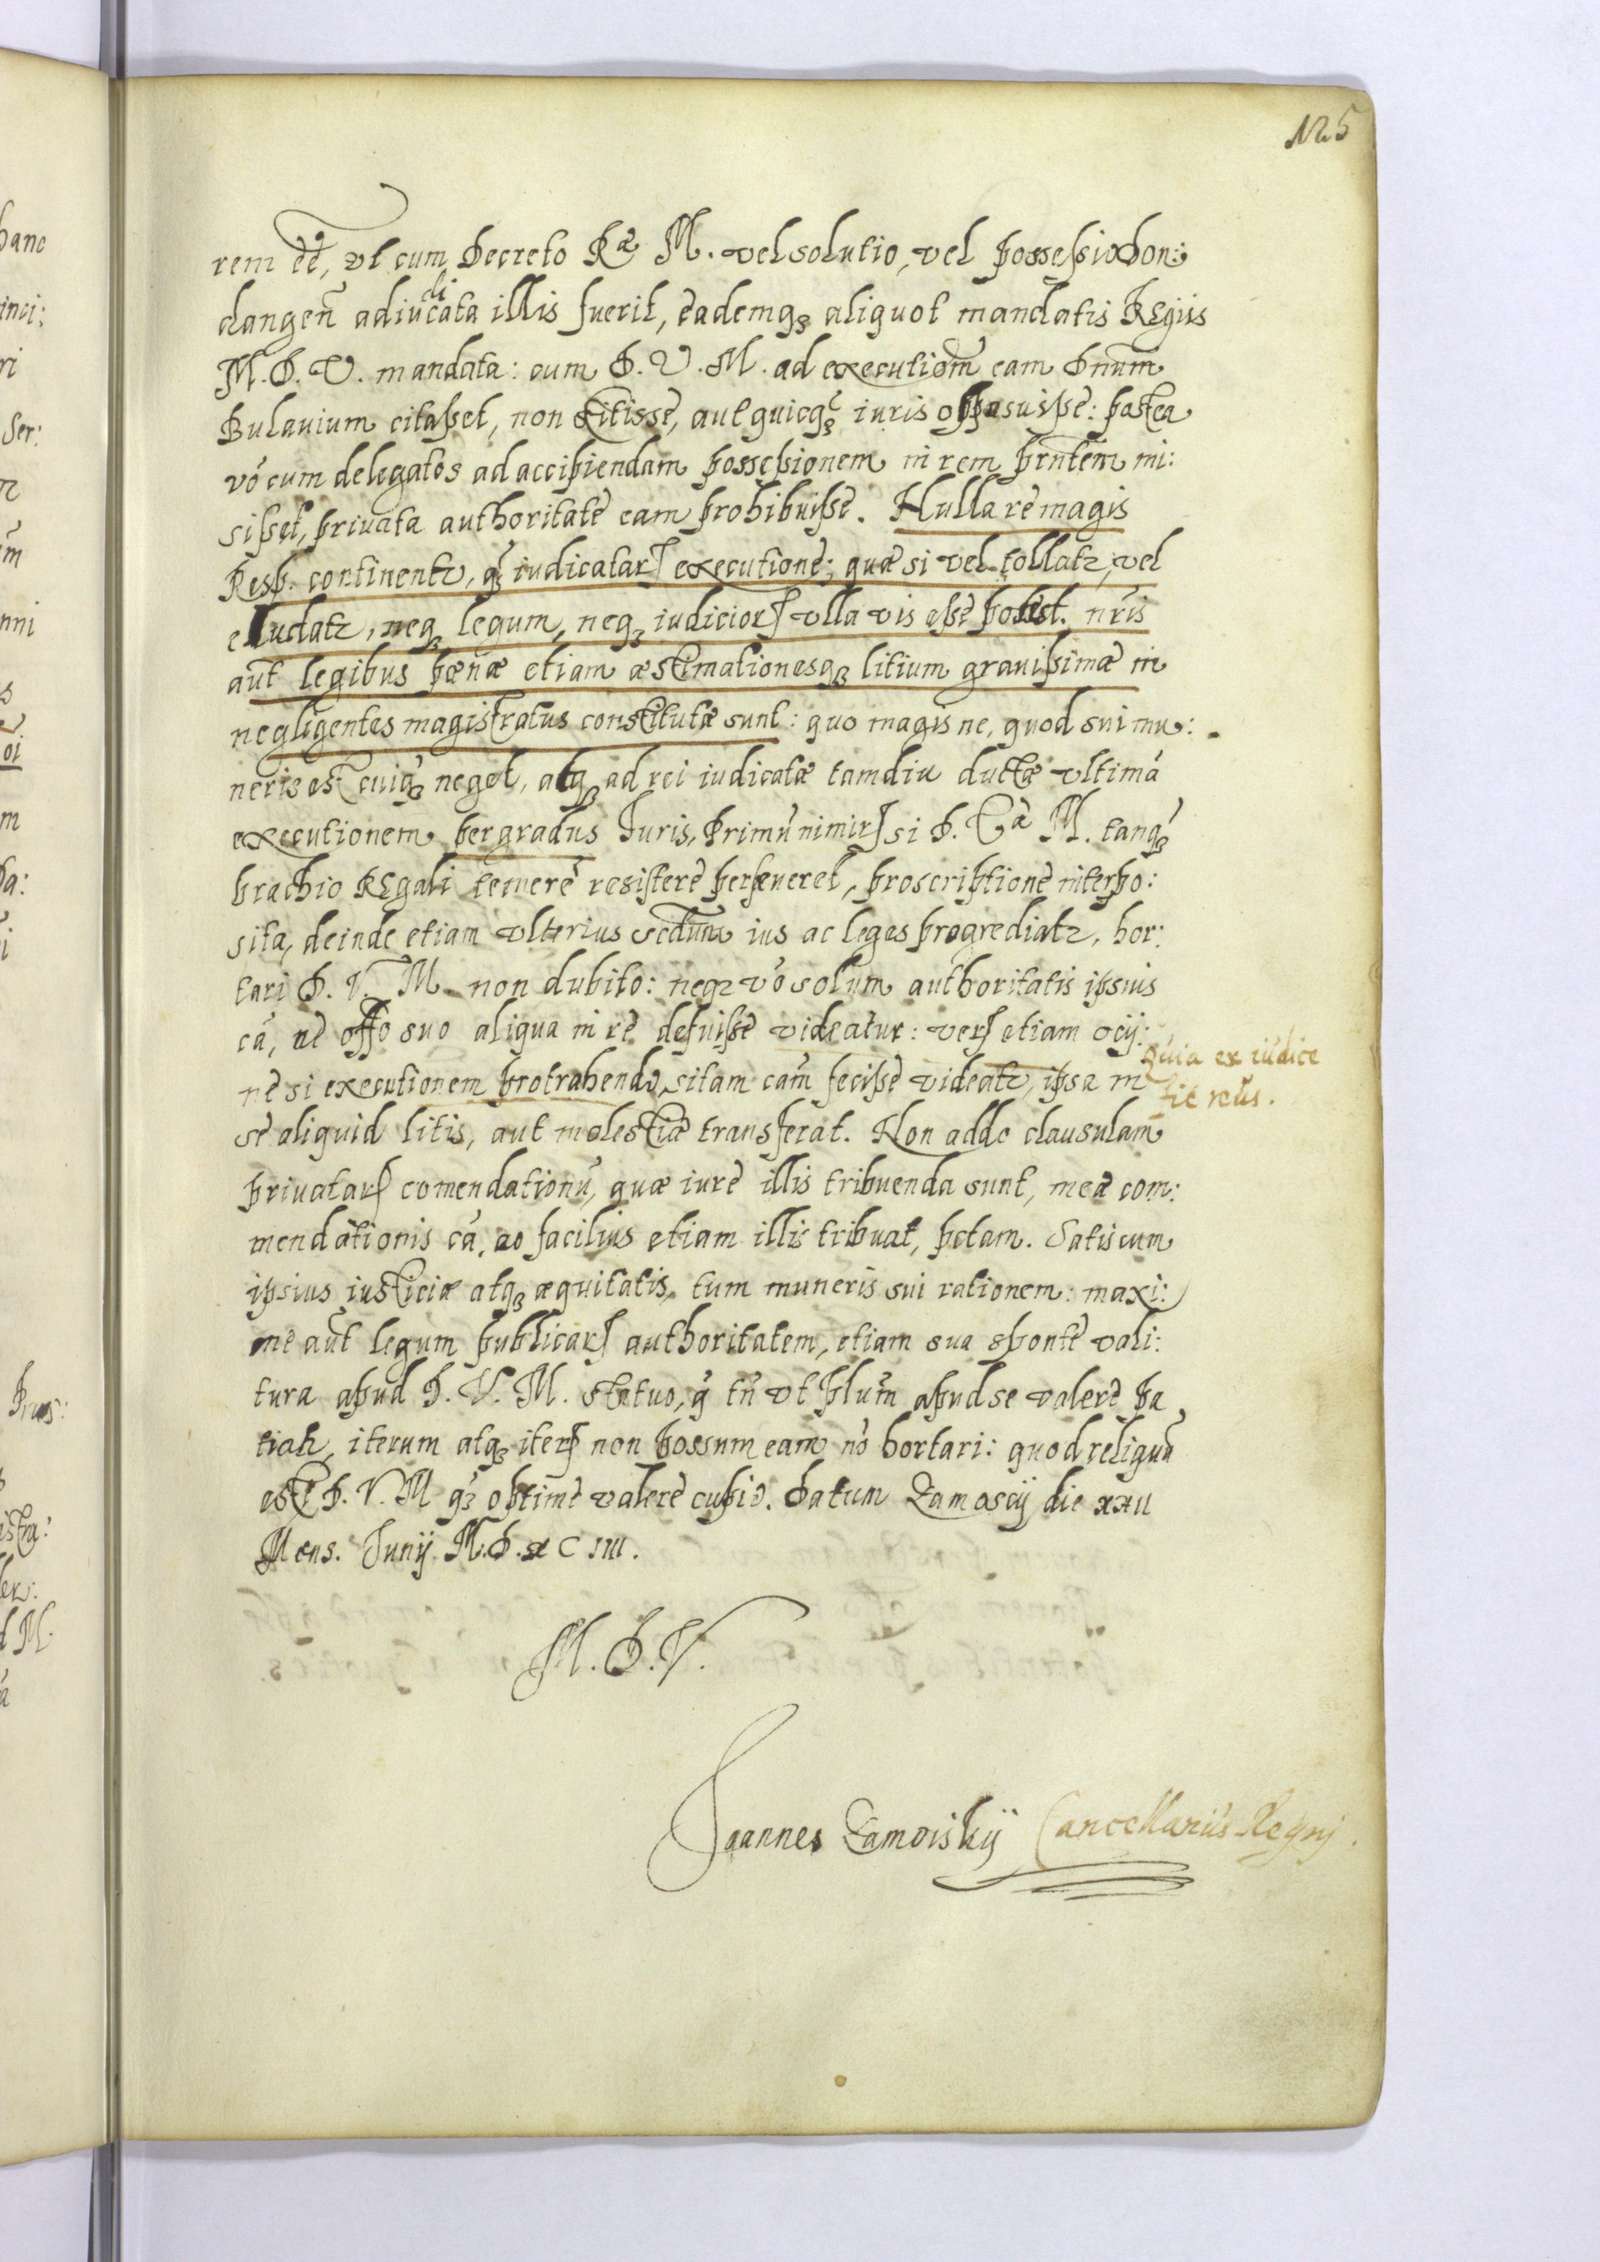 125
rem eẽ, vt cum Decreto Ræ M. vel solutio, vel possessio Don:
dangeñ adiudicata illis fuerit, eademq₃ aliquot mandatis Regiis
M. D. V. mandata: cum D. V. M. ad executiom̃ eam Dnum̃
Bulavium citasset, non stitisse, aut quicq₃ iuris opposuisse: postea
vo cum delegatos ad accipiendam possesionem in rem prñtem mi:
sisset, privata authoritate eam prohibuisse. Nulla re magis
Resp. continentr, q̃ iudicatarʃ executione; quæ si vel tollatr, vel
eludatr, neq₃ legum, neq₃ iudiciorʃ vlla vis esse potest. nr̃is
aut̃ legibus pœnæ etiam æstimationesq₃ litium gravissimæ in
negligentes magistratus constitutæ sunt: quo magis ne, quod sui mu:
neris est cuiq₃ neget, atq₃ ad rei iudicatæ tamdiu ductæ vltimá
executionem per gradus Iuris, Primũ nimirʃ si D. Ca M. tanq₃
brachio Regali temere resistere perseveret, proscriptione interpo:
sita, deinde etiam vlterius secdum ius ac leges progrediatr, hor:
tari D. V. M. non dubito: neqz vo solum authoritatis ipsius
cá, ne offo suo aliqua in re defuisse videatur: verʃ etiam ocij:
ne si executionem protrahendo, sitam cam̃ fecisse videatr, ipsa in
Quia ex iudice
fit reus.
se aliquid litis, aut molestiæ transferat. Non addo clausulam
privatarʃ comendationũ, quæ iure illis tribuenda sunt, meæ com:
mendationis cá, eo facilius etiam illis tribuat, petam. Satis cum
ipsius iusticiæ atq₃ æquitatis, tum muneris sui rationem: maxi:
me aut̃ legum publicarʃ authoritatem, etiam sua sponte vali:
tura apud D. V. M. statuo, q̃ tñ vt plurm̃ apud se valere pa
tiatr, iterum atq₃ iterʃ non possum eam nõ hortari: quod reliquũ
est D. V. M q₃ optime valere cupio. Datum Zamoscij die
Mens. Iunij M.D.XCIIII.
M. D. V.
Joannes Zamoiskij Cancellarius Regnj.